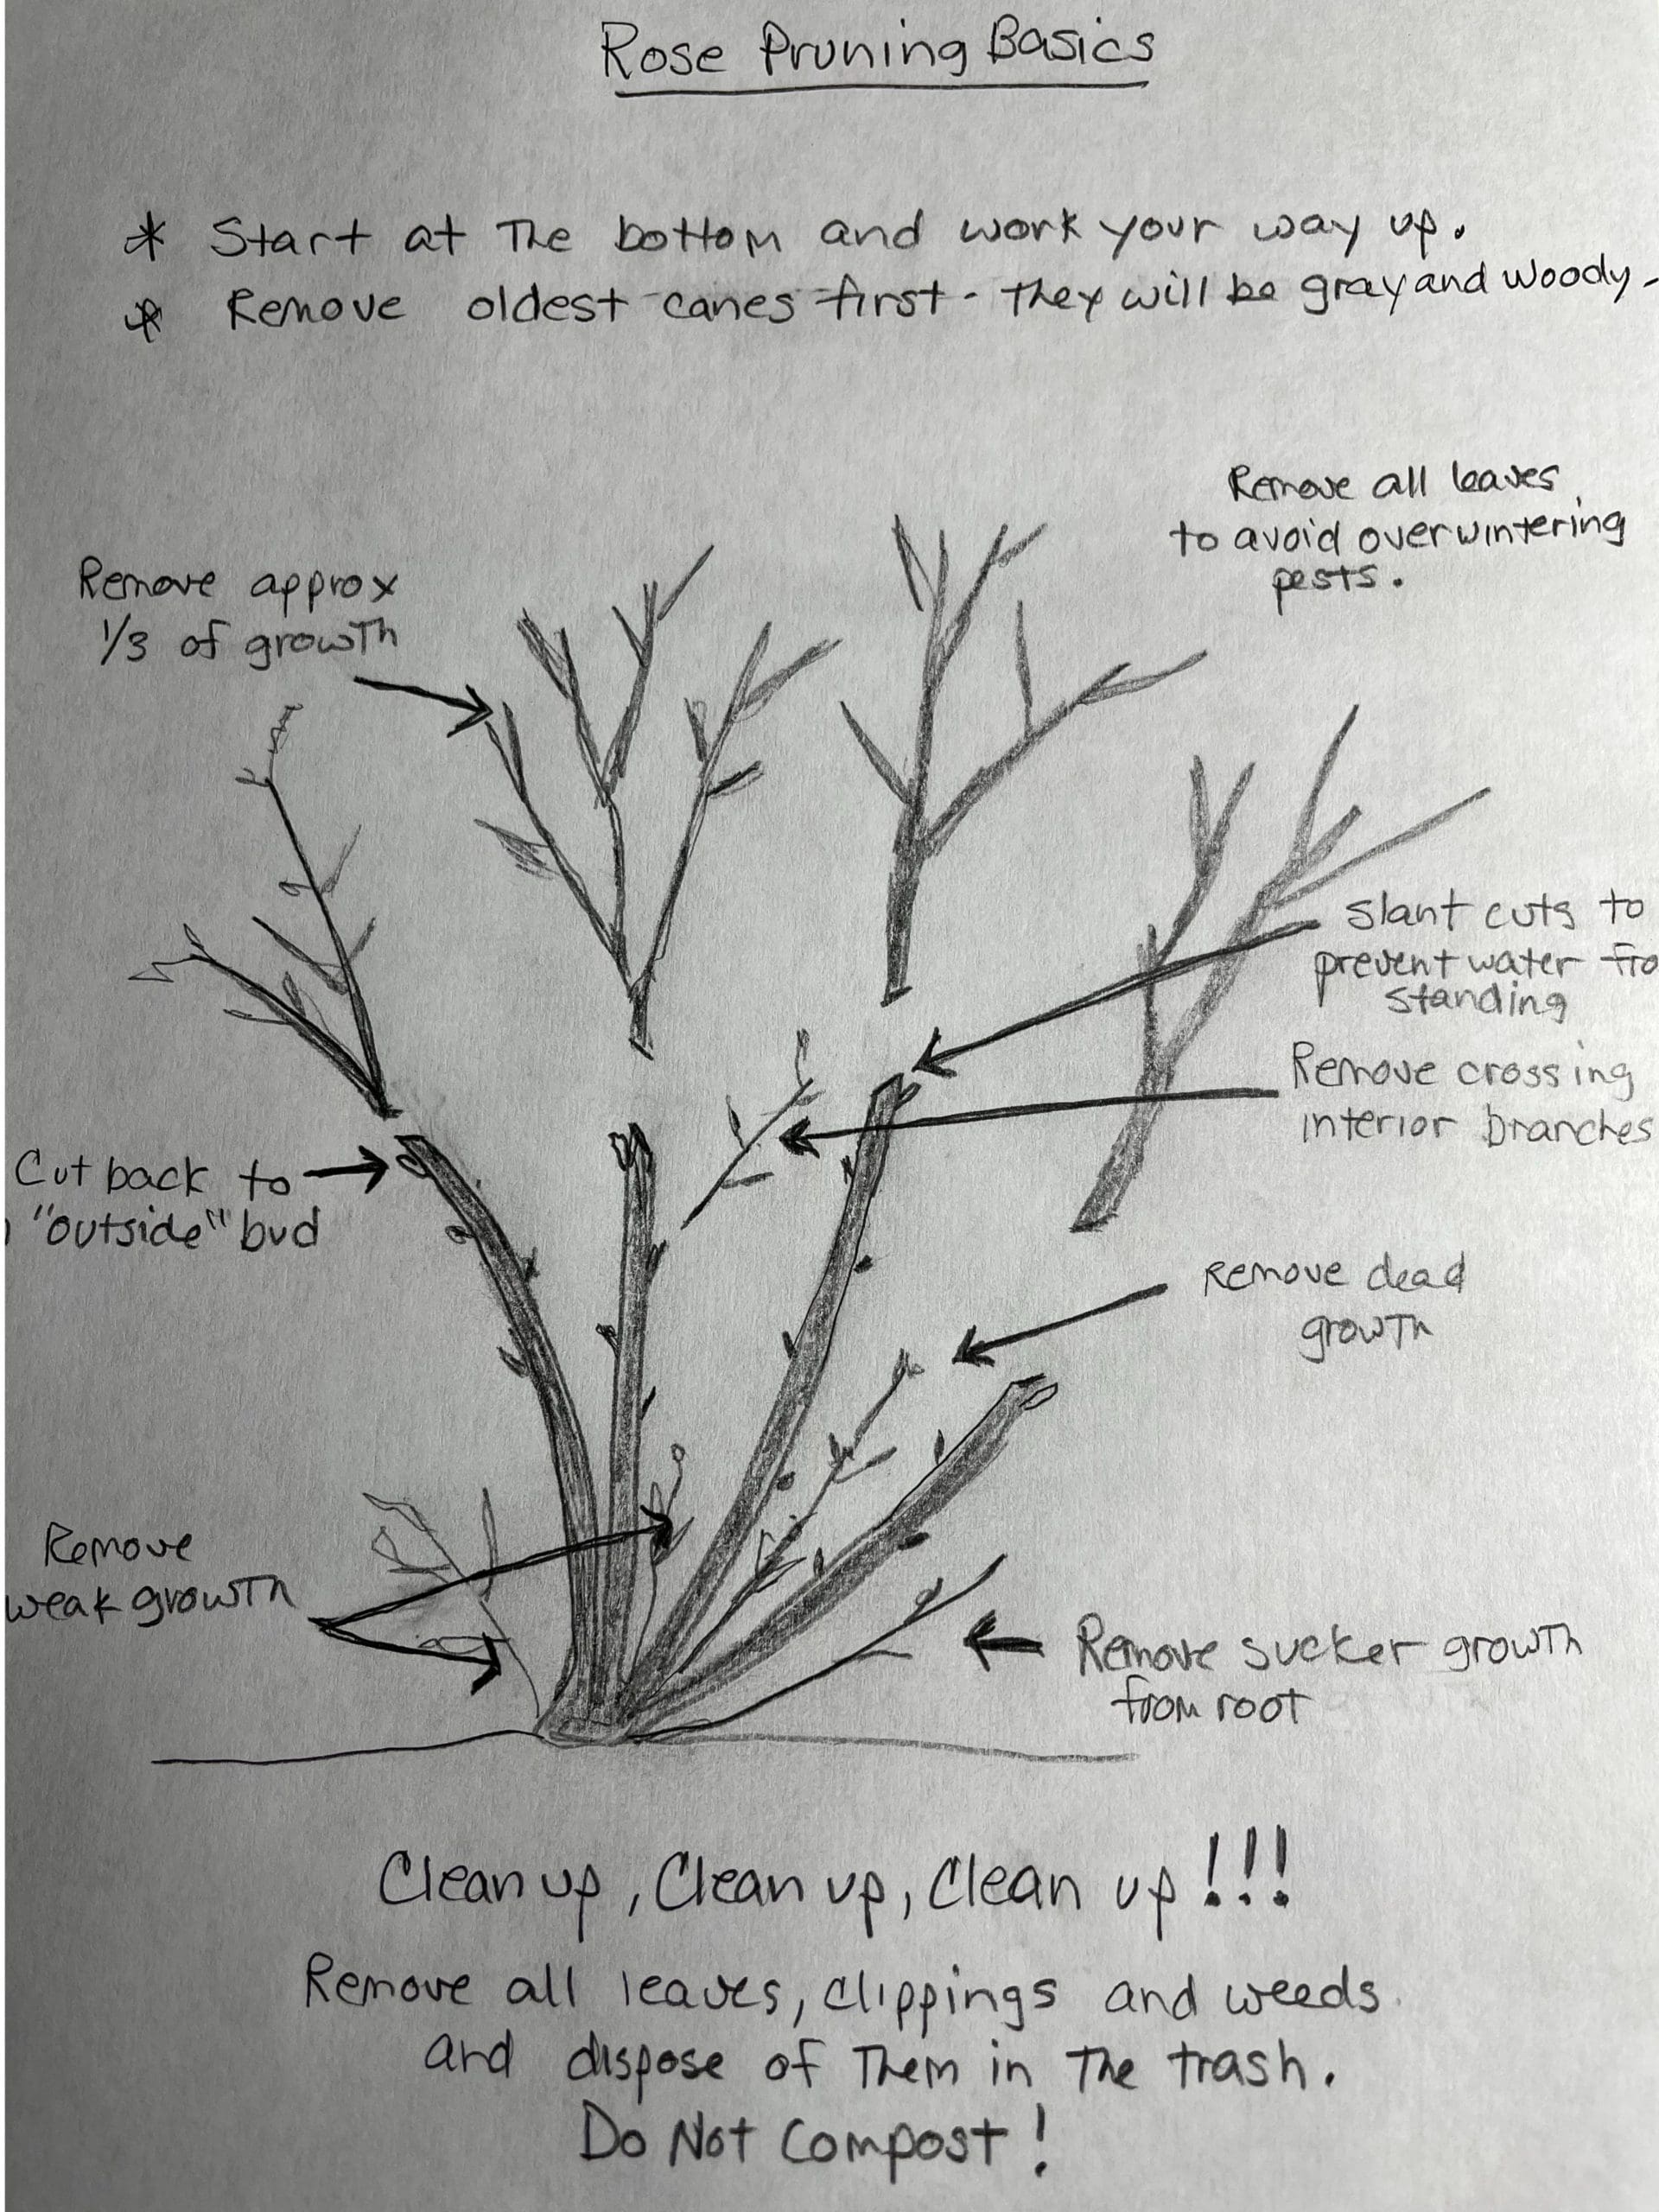 Rose Pruning Basics
* Start at The bottom and work your way up.
* Remove oldest canes first - they will be gray and woody.
Remove all leaves
to avoid overwintering
pests.
Remove approx
1/3 of growth
Slant cuts to
prevent water fro
standing
Remove crossing
interior branches
Cut back to
"outside" bud
Remove dead
growth
Remove
weak growth
Remove sucker growth
from root
Clean up, Clean up, Clean up!!!
Remove all leaves, clippings and weeds
and dispose of Them in The trash.
Do Not Compost!